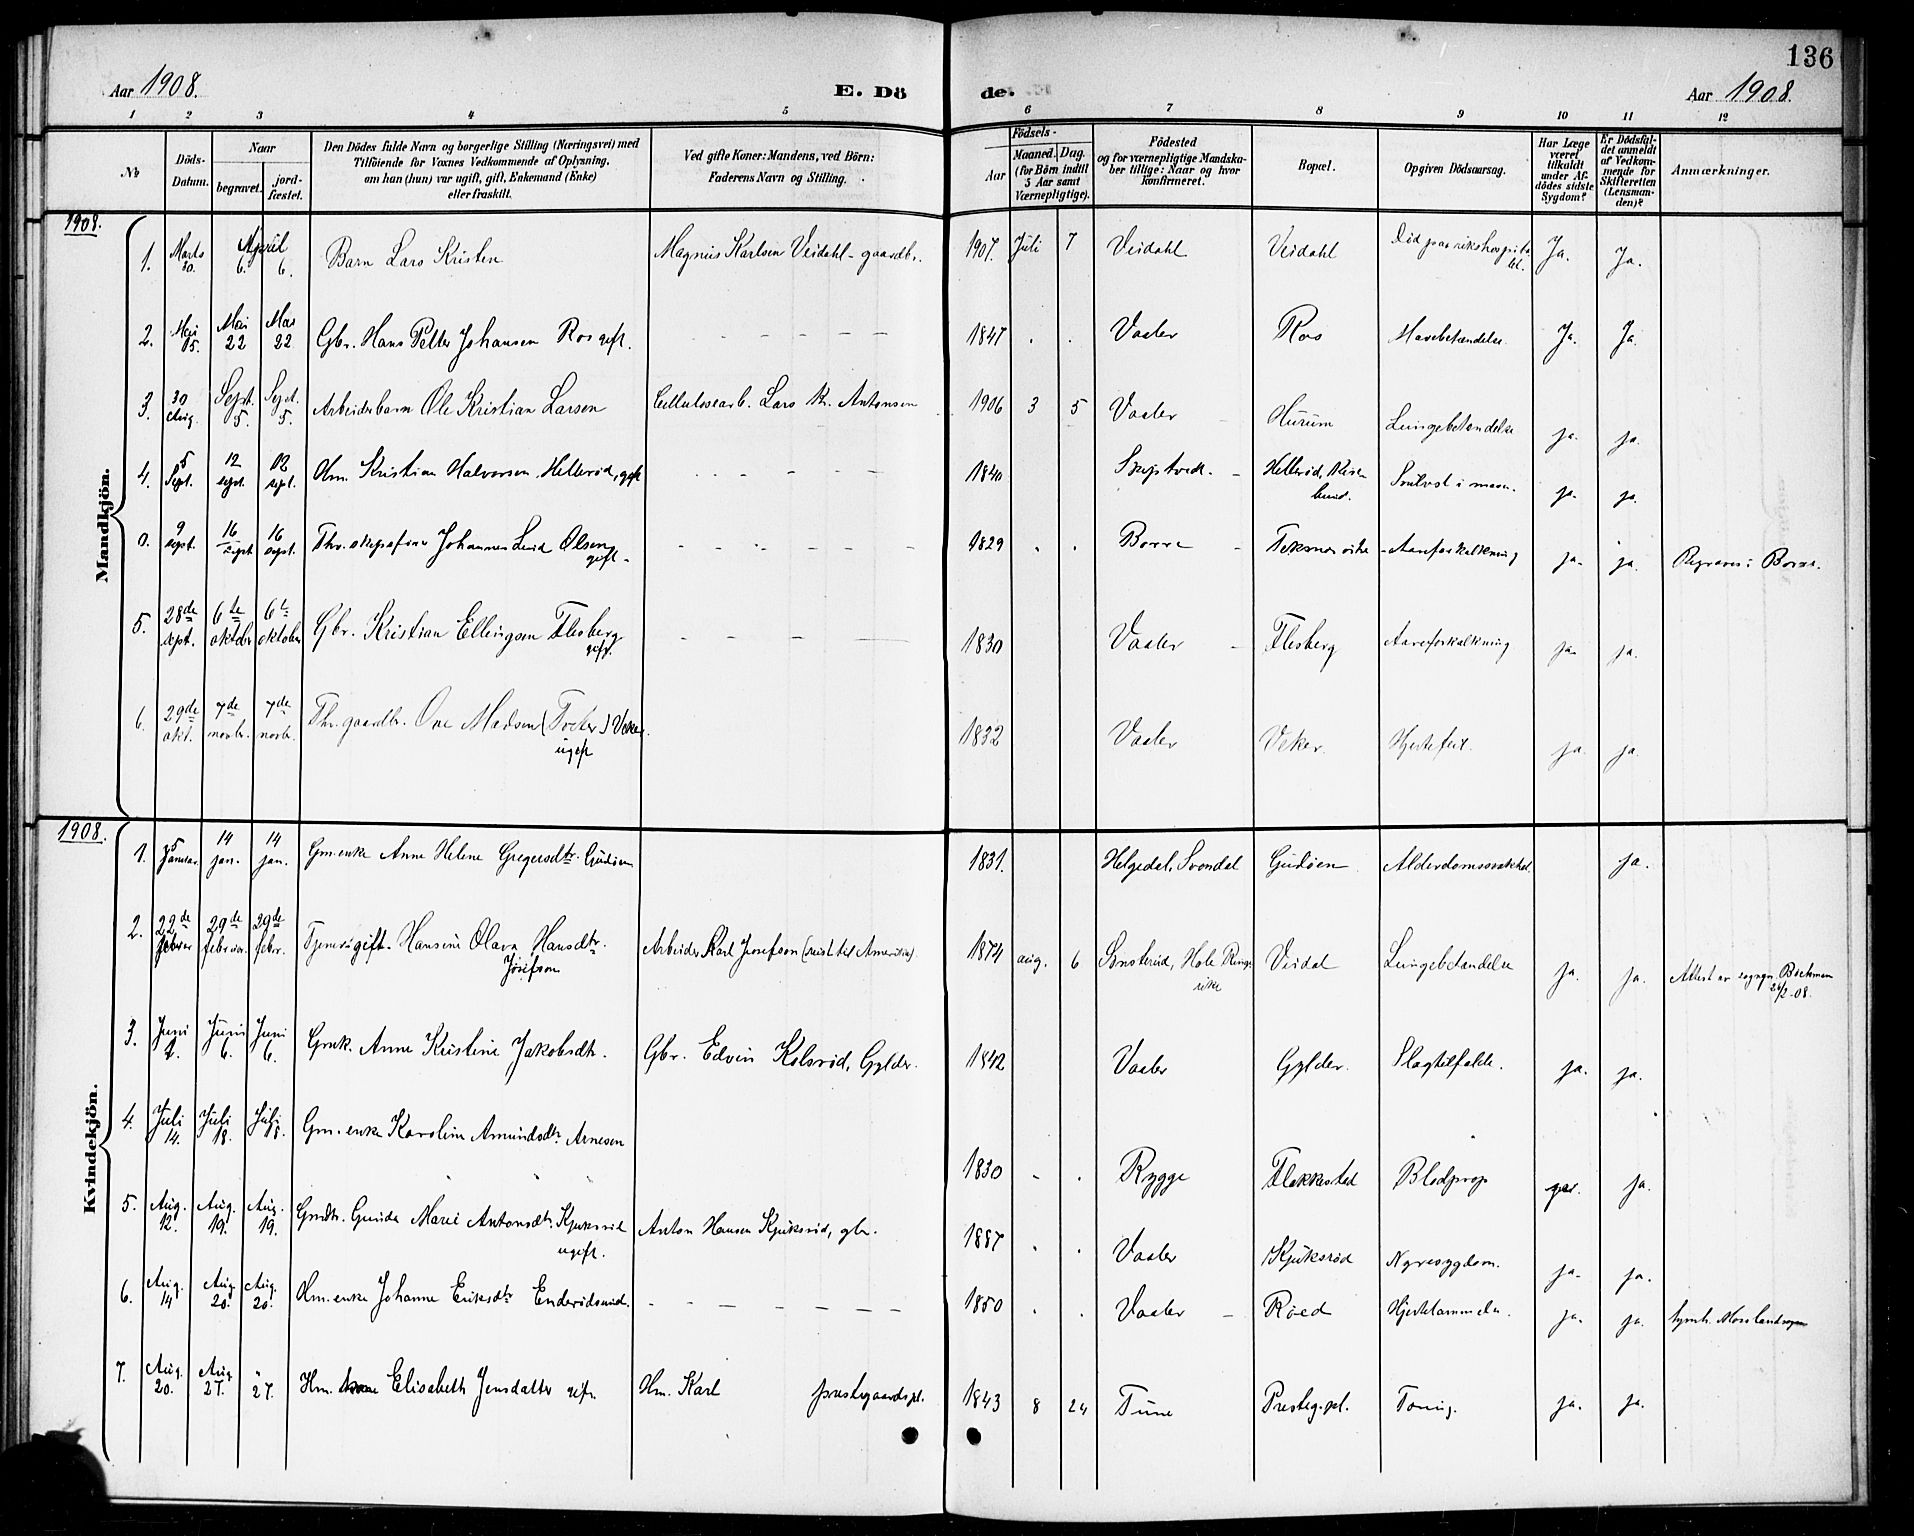 136
Aar 1908.
E. Dö
de.
Aar 1908.
1 2 3 4 5 6 7 8 9 10 11 12
No
Döds-
Datum.
Naar
begravet.
jord-
fæstet.
Den Dödes fulde Navn og borgerlige Stilling (Næringsvei) med
Tilföiende for Voxnes Vedkommende af Oplysning,
om han (hun) var ugift, gift, Enkemand (Enke)
eller fraskilt.
Ved gifte Koner: Mandens, ved Börn:
Faderens Navn og Stilling.
Födsels-
Aar
Maaned. Dag.
(for Börn indtil
5 Aar samt
Værnepligtige).
Födested
og for værnepligtige Mandska-
ber tillige: Naar og hvor
konfirmeret.
Bopæl.
Opgiven Dödsaarsag.
Har Læge
været
tilkaldt
under Af-
dödes sidste
Sygdom?
Er Dödsfal-
det anmeldt
af Vedkom-
mende for
Skifteretten
(Lensman-
den)?
Anmærkninger.
1908.
Mandkjön.
1. Marts 30. April 6. 6. Barn Lars Kristen Magnus Karlsen Veidahl - gaardbr. 1907. Juli 7 Veidahl Veidahl Död paa rikshospita-
let. Ja. Ja.
2. Mai 15. Mai 22 Mai 22 Gbr. Hans Petter Johansen Ros gift. - - - - - 1847 . . Vaaler Ros Mavebetændelse Ja. Ja.
3. 30 Aug. Sept. 5. Sept. 5. Arbeiderbarn Ole Kristian Larsen Cellulosearb. Lars Kr. Antonsen 1906 3 5 Vaaler Hurum Lungebetændelse ja. ja.
4. 5 Sept. 12 sept. 12 sept. Hm. Kristian Halvorsen Hellerød, gift - - - - - 1840 Skiptvedt. - Hellerød,
ja. ja.
0. 9 sept. 16 sept 16 sept. Johannes Olsen
gift. - - - - - 1829 . . Borre - - Aareforkalkning ja. ja. Begraves i Borre.
5. 28de sept. 6te oktober 6te oktober Gbr. Kristian Ellingsen Flesberg
gift. - - - - 1830 Vaaler - Flesberg Aareforkalkning ja. ja.
6. 29de okt. 7de novbr. 7de novbr. Fhv. gaardbr. Ove Madsen Veker.
ugift 1832 Vaaler Veker. Hjertefeil. ja. ja.
1908.
Kvindekjön.
1. 5 Januar. 14 jan. 14 jan. Gm.enke Anne Helene Gregersdtr. Gudøen 1831. Helgedal, Svendal Gudøen Alderdomssvakhet ja.
2. 22de februar 29de februar 29de febr. Hansine Olava Hansdtr.
Josefson Arbeider Karl Josefson (reist til Amerika). 1874 aug. 6 Hole Ringe-
rike Veidal Lungebetændelse ja. ja. Attest av sogngpr. Bøckman
26/2-08.
3. Juni 2. Juni 6. Juni 6. Gmk. Anne Kristine Jakobsdtr. Gbr. Edvin Kolsrød, Gylder. 1842 Vaaler Gylder. Slagtilfælde. ja. ja.
4. Juli 14. Juli 18. Juli 18. Gm. enke Karoline Amundsdtr. Arnesen 1830 - . Rygge Flekkestad Blodprop ja.
5. Aug. 12. Aug. 19. Aug. 19. Gmdtr. Gunda Marie Antonsdtr. Kjuksrød
ugift. Anton Hansen Kjuksrød, gbr. 1887 . . Vaaler Kjuksrød Nyresygdom. ja. ja.
6. Aug. 14 Aug. 20. Aug. 20. Hm.enke Johanne Eriksdtr - - - - - - 1850 . . Vaaler - Røed Hjertelammelse. ja. ja.
7. Aug. 20. Aug. 27. " 27. Hm. Elisabeth Jensdatter gift. Hm. Karl prestegaardspl. 1843 8 24 Tune Presteg.pl. Tæring. ja. ja.